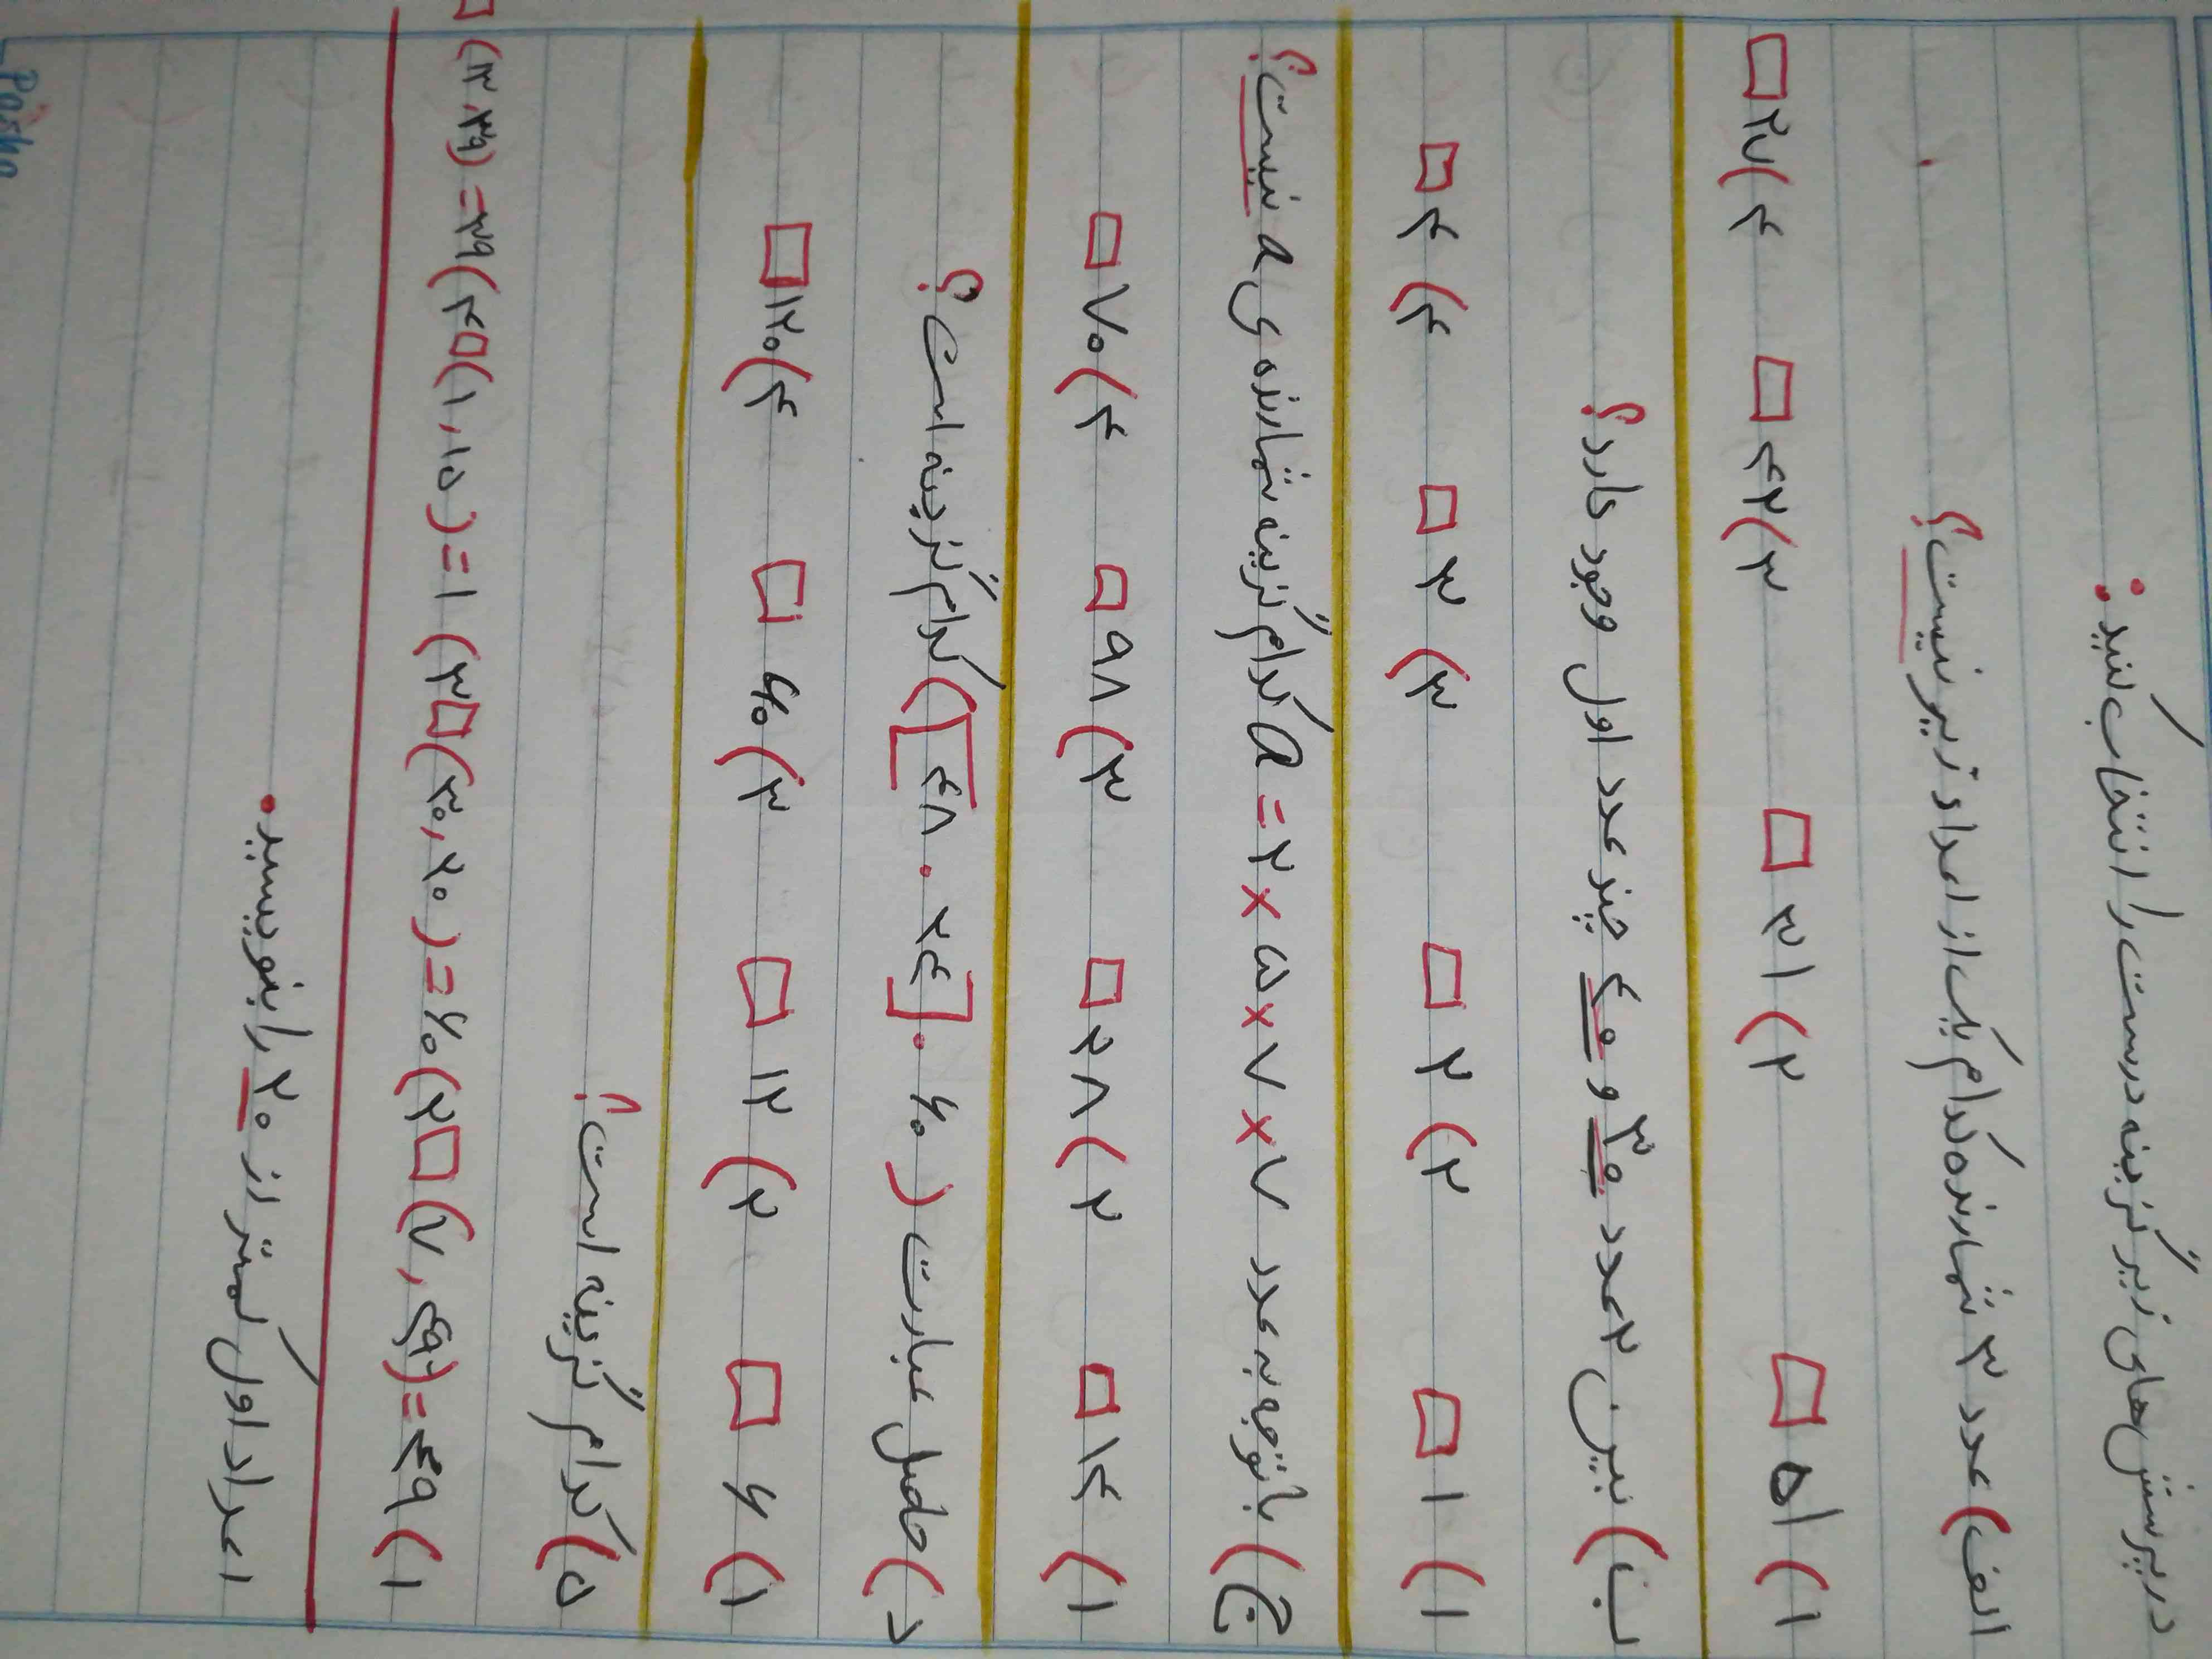 در پرسش های زیر گزینه درست را انتخاب کنید:
الف) عدد ۳ شمارنده کدام یک از اعداد زیر نیست؟
۱) ۵۱ □ ۲) ۳۱ □ ۳) ۴۲ □ ۴) ۲۷ □
ب) بین ۲ عدد ۳۰ و ۴۰ چند عدد اول وجود دارد؟
۱) ۱ □ ۲) ۲ □ ۳) ۳ □ ۴) ۴ □
ج) با توجه به عدد a = ۲ × ۵ × ۷ × ۷ کدام گزینه شمارنده ی a نیست؟
۱) ۱۴ □ ۲) ۲۸ □ ۳) ۹۸ □ ۴) ۷۰ □
د) حاصل عبارت ( ۶۰ , [ ۲۴ , ۴۸ ] ) کدام گزینه است؟
۱) ۶ □ ۲) ۱۲ □ ۳) ۶۰ □ ۴) ۱۲۰ □
ه) کدام گزینه است؟
۱) ۴۹ = (۷ , ۴۹) □ ۲) ۶۰ = (۳۰ , ۲۰) □ ۳) ۱ = (۱ , ۱۵) □ ۴) ۳۹ = (۱۳ , ۳۹) □
اعداد اول کمتر از ۲۰ را بنویسید.